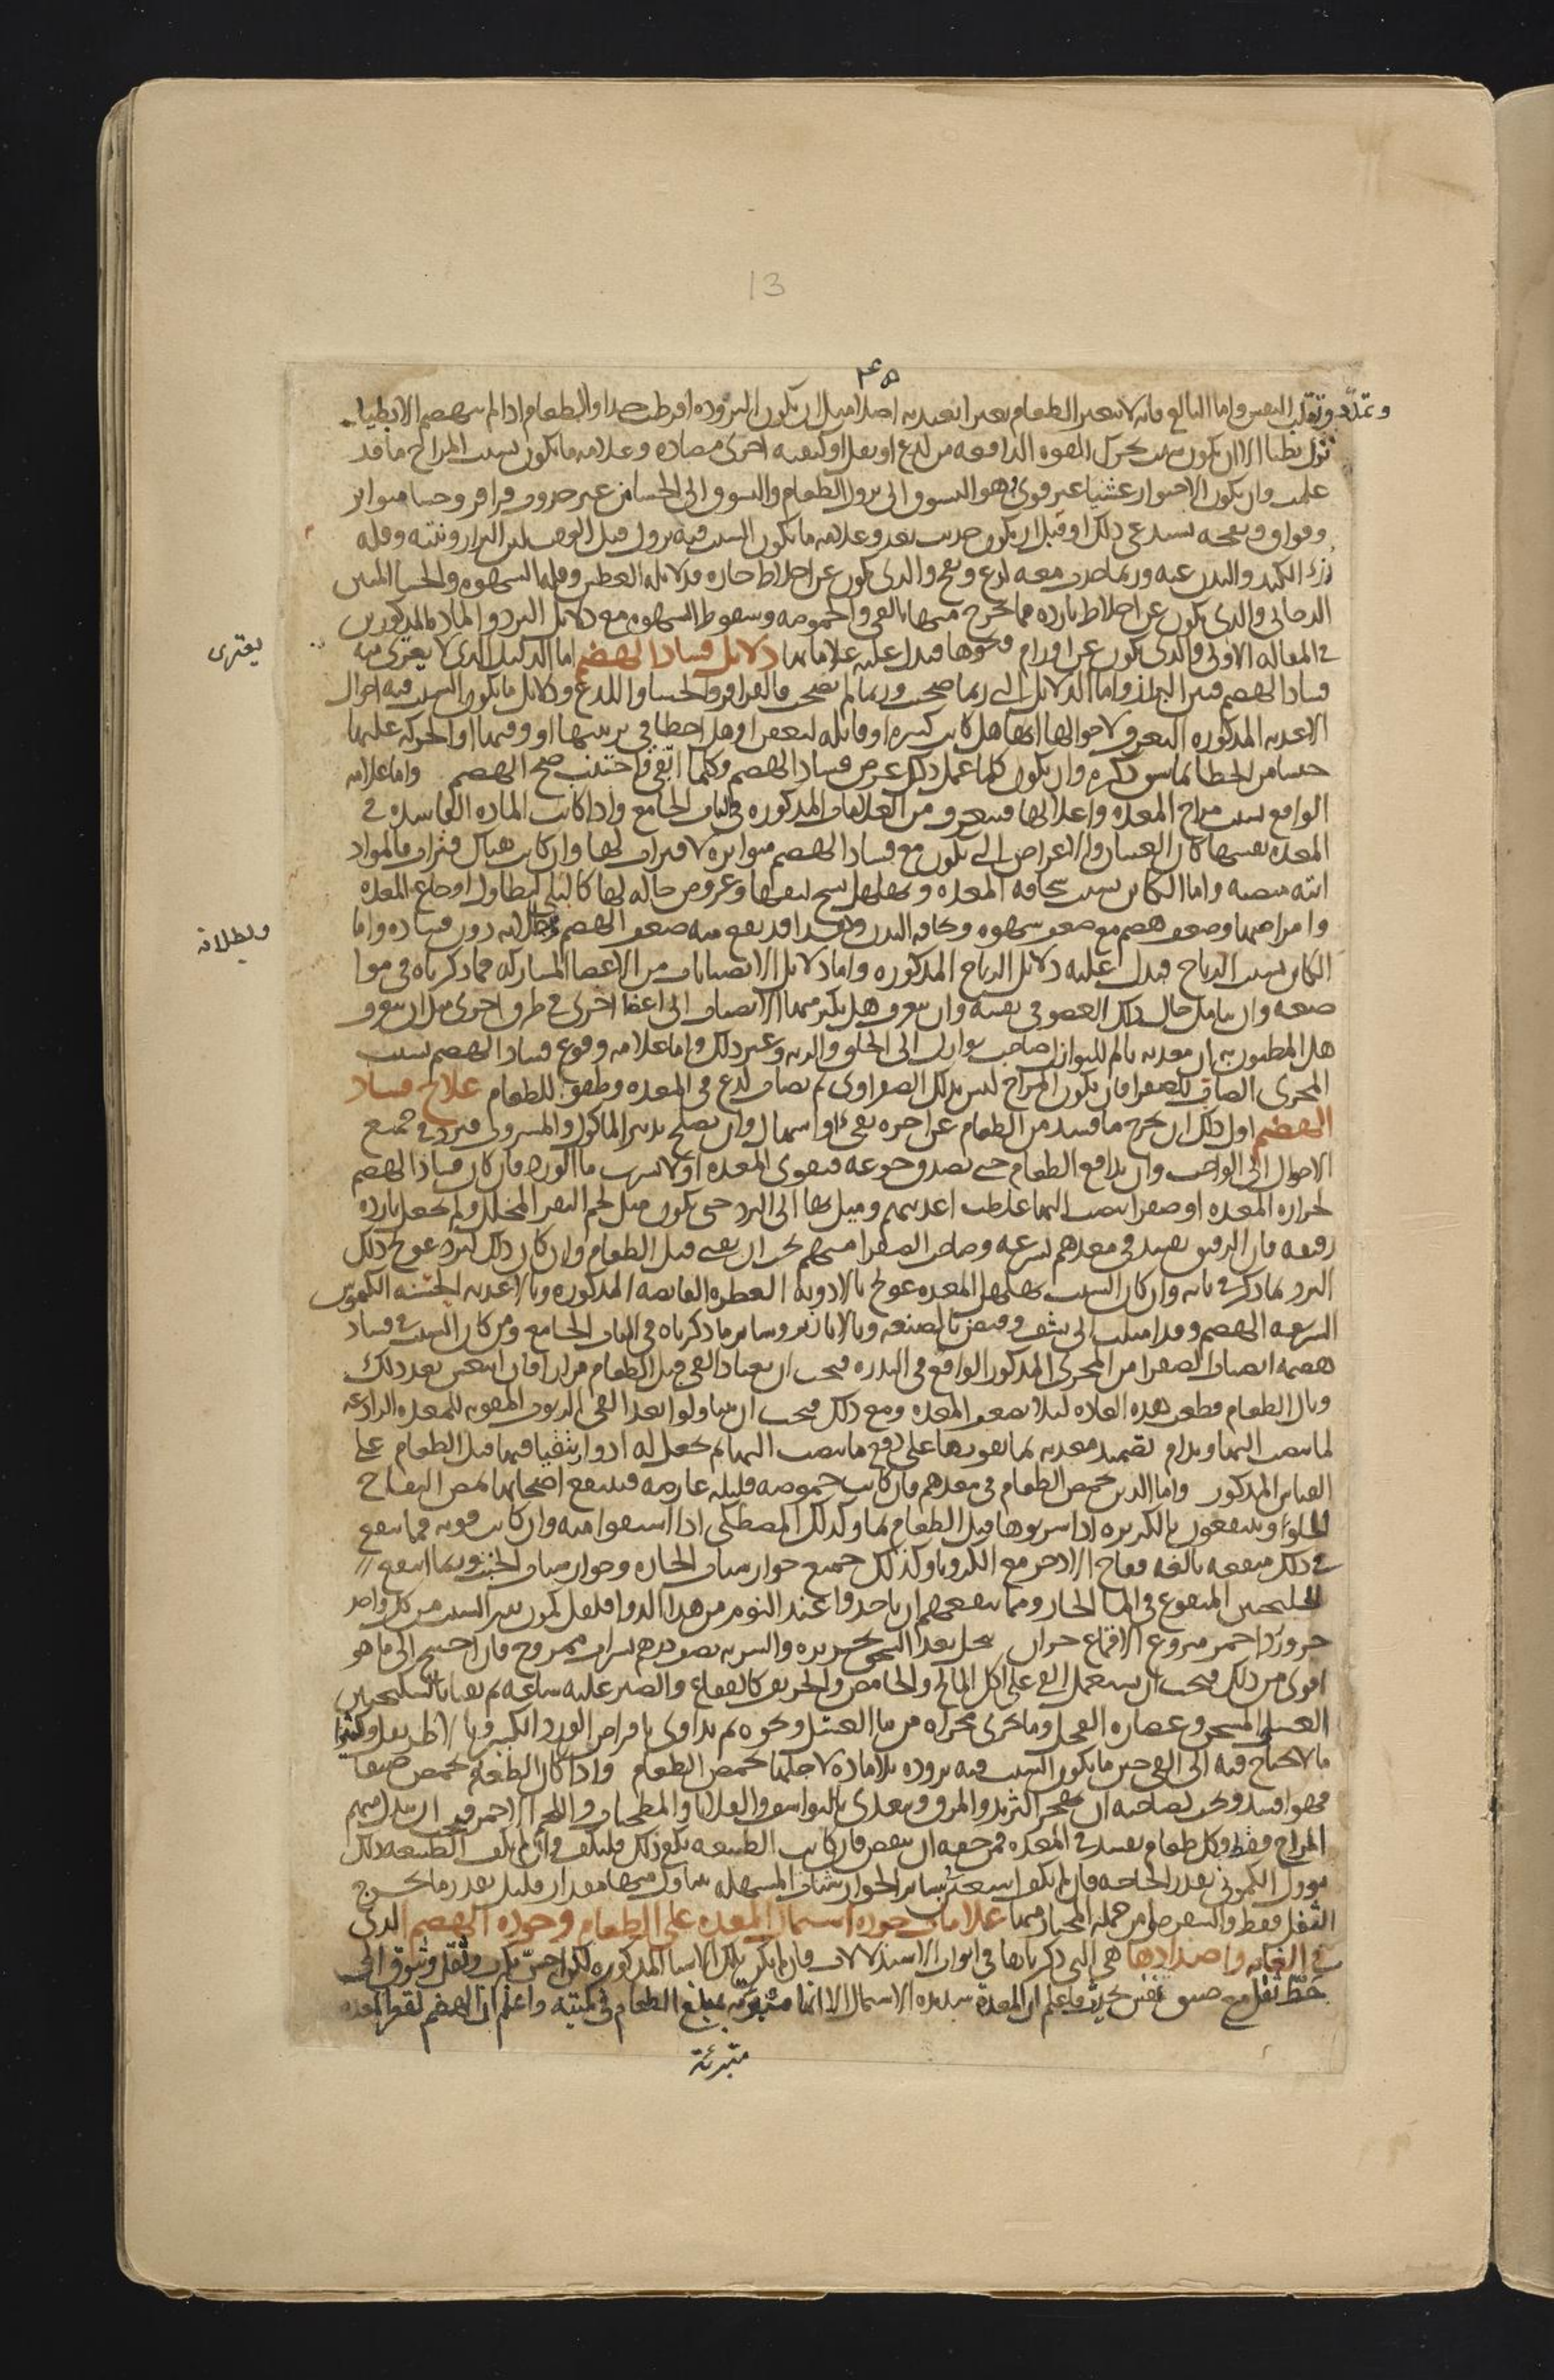 13
٤٥
وتمدّد وتقلب النفس واما البالغ فانه لا يتغير الطعام تغيرا يعتد به اصلا مثل ان يكون البرودة افرطت جدا والطعام اذا لم ينهضم الا بطيا
نزل بطيا الا ان يكون سبب يحرك القوة الدافعة من لذع او ثقل او كيفية اخرى مضادة وعلامة ما يكون بسبب المزاج ما قد
علمت وان يكون الاحتواء غير قوى هو التشوق الى نزول الطعام والتشوق الى الجشا من غير حدوث قراقر وجشا متواتر
وفواق ونفخة تستدعى ذلك او قبل ان يكون حدثت بعد وعلامة ما يكون السبب فيه نزول قبل الوقت لين البراز ونتنه وقلة
درء الكبد والبدن عنه وربما حدث معه لذع ونفخ والذى يكون عن اخلاط حارة فدلايله العطش وقلة الشهوة والجشا المنتن
الدخانى والذى يكون عن اخلاط باردة فما يخرج منها بالقى والحموضة وسقوط الشهوة مع دلايل البرد والمادة المذكورين
فى المقالة الاولى والذى يكون عن اورام ونحوها فيدل عليه علاماتها دلايل فساد الهضم اما الدليل الذى لا يعرى منه
يعترى
فساد الهضم فنتن البراز واما الدلايل التى ربما صحبت وربما لم تصحب فالقراقر والجشا واللذع ودلايل ما يكون السبب فيه احوال
الاغذية المذكورة التعرف لاحوالها انها هل كانت كثيرة او قليلة او هل اخطا فى ترتيبها او وقتها او الحركة عليها
جنسا من الخطا مما سوى ذكره وان يكون كلما عمل ذلك عرض فساد الهضم وكلما اتقى واجتنب صح الهضم واما علامة
الواقع بسبب مزاج المعدة واعلالها فتعرف من العلامات المذكورة فى الباب الجامع واذا كانت المادة الفاسدة فى
المعدة نفسها كان الغثيان والاعراض التى تكون مع فساد الهضم متواترة لا فترات لها وان كانت هناك فترات فالمواد
اتية منصبة واما الكاين بسبب سخافة المعدة وتهلهل نسج ليفها وعروض حالة لها كالبلى لتطاول اوجاع المعدة
وامراضها وضعف هضم مع ضعف شهوة ونحافة البدن وهذا قد يقع منه ضعف الهضم وبطلانه دون فساده واما
وبطلانه
الكاين بسبب الرياح فيدل عليه دلايل الرياح المذكورة واما دلايل الانصبابات من الاعضا المشاركة فما ذكرناه فى موا
ضعه وان يتامل حال ذلك العضو فى نفسه وان يعرف هل يكثر منها الانصباب الى اعضا اخرى فى طرق اخرى مثل ان يعرف
هل المظنون به ان معدته تالم للنوازل صاحب نوازل الى الحلق والرية وغير ذلك واما علامة وقوع فساد الهضم بسبب
المجرى الصاب للصفرا فان يكون المزاج ليس بذلك الصفراوى ثم يصاب لذع فى المعدة وطفو للطعام علاج فساد
الهضم اول ذلك ان يخرج ما فسد من الطعام عن اخره بقى او اسهال وان يصلح تدبير الماكول والمشروب فيرد فى جميع
الاحوال الى الواجب وان يدافع الطعام حتى يصدق جوعه فيقوى المعدة اولا بشرب ما الورد فان كان فساد الهضم
لحرارة المعدة او صفرا تنصب اليها غلظت اغذيتهم وميل بها الى البرد حتى يكون مثل لحم البقر المخلل ولم يجعل باردة
رقيقة فان الرقيق يفسد فى معدهم بسرعة وصاحب الصفرا منهم يجب ان يقى قبل الطعام وان كان ذلك لبرد عولج ذلك
البرد بما ذكر فى بابه وان كان السبب تهلهل المعدة عولج بالادوية العطرة القابضة المذكورة وبالاغذية الحسنة الكيموس
السريعة الهضم وقد اميلت الى نشف وقبض بالصنعة وبالابازير وساير ما ذكرناه فى الباب الجامع ومن كان السبب فى فساد
هضمه انصباب الصفرا من المجرى المذكور الواقع فى الندرة فيجب ان يعتاد القى قبل الطعام مرارا فان انتعش بعد ذلك
ونال الطعام قطعت هذه العادة ليلا تضعف المعدة ومع ذلك فيجب ان يتناولوا بعد القى الربوب المقوية للمعدة الرادعة
لما ينصب اليها ويدام تضميد معدته بما يقويها على دفع ما ينصب اليها ثم يجعل له ادوار يتقيا فيها قبل الطعام على
القياس المذكور واما الذين يحمض الطعام فى معدهم فان كانت حموضة قليلة عارضة فينتفع اصحابها بمص التفاح
الحلو وينتفعون بالكزبرة اذا شربوها قبل الطعام بما وكذلك المصطكى اذا استفوا منه وان كانت قوية فما ينفع
فى ذلك منفعة بالغة فقاح الاذخر مع الكرويا وكذلك جميع جوارشنات الحارة وجوارشنات الخبث ومما ينفع
الجلنجبين المنقوع فى الما الحار ومما ينفعهم ان ياخذوا عند النوم من هذا الدوا فلفل كمون بزر السذاب من كل واحد
جزو ورد احمر منزوع الاقماع جزان ينخل بعد السحق بحريرة والشربة نصف درهم بشراب ممزوج فان احتيج الى ما هو
اقوى من ذلك فيجب ان يستعمل القى على اكل المالح والحامض والحريف كالفقاع والصبر عليه ساعة ثم يقيا بالسكنجبين
العسلى المسخن وعصارة الفجل وما يجرى مجراه من ما العسل ونحوه ثم يداوى باقراص الورد الكبير وبالاطريفل وكثيرا
ما لا يحتاج فيه الى القى حين ما يكون السبب فيه برودة بلا مادة لاجلها يحمض الطعام واذا كان الطعام يحمض صيفا
فهو افسد ويجب لصاحبه ان يهجر الثريد والمرق ويتغذى بالنواشف والقلايا والمطجنات واللحم الاحمر فيجب ان يبدل منهم
المزاج فقط وكل طعام يفسد فى المعدة فمن حقه ان ينفض فان كانت الطبيعة تكفى ذلك فليكف وان لم يكف الطبيعة ذلك
تنوول الكمونى بقدر الحاجة فان لم يكف استعين بساير الجوارشنات المسهلة يتناول منها مقدار قليل بقدر ما يخرج
الثفل فقط والسفرجلى من جملة المختار منها علامات جودة اشتمال المعدة على الطعام وجودة الهضم الذى
فى الغاية واضدادها هى التى ذكرناها فى ابواب الاستدلالات فان لم يكن تلك الاسباب المذكورة لكن احس بكرب وثقل وتشوق الى
حط ثقل مع ضيق نفس يحدث فاعلم ان المعدة شديدة الاشتمال الا انها متبرئة بمبلغ الطعام فى كميته واعلم ان الهضم لقعر المعدة
متبرئة